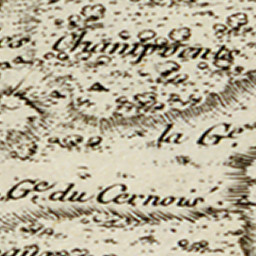 Champvents
la G.e
G.e du Cernous